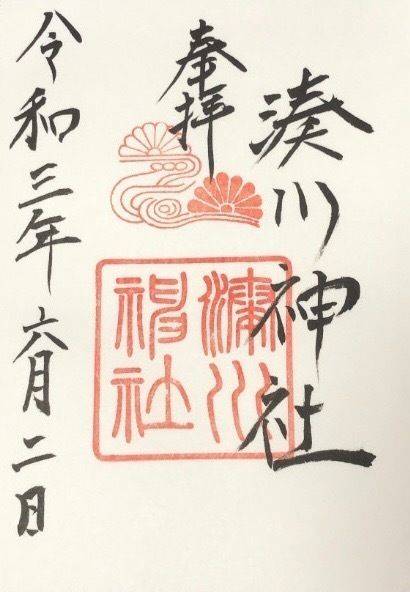 湊川神社
奉拝
湊川
神社
令和三年六月二日